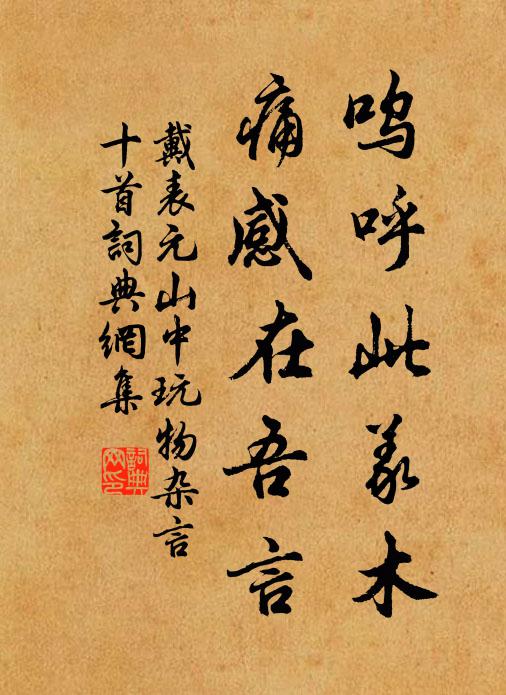 呜呼此义木
痛感在吾言
戴表元山中玩物杂言
十首詞典網集
詞典網印